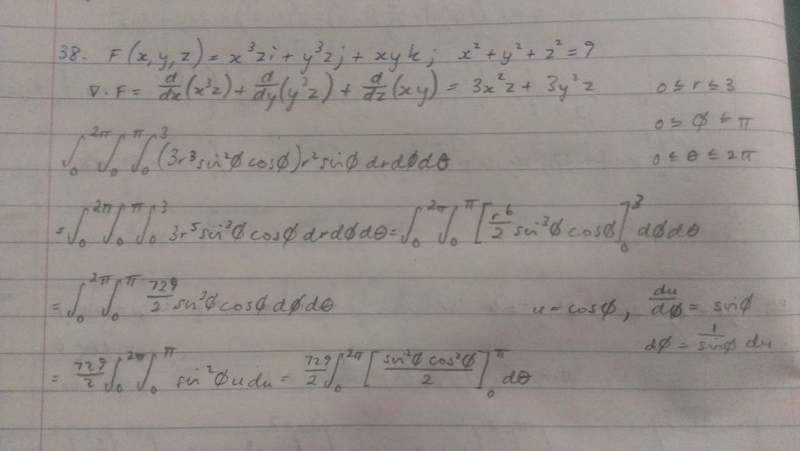 38. F(x,y,z) = x³zi + y³zj + xyk; x² + y² + z² = 9
∇·F = d/dx(x³z) + d/dy(y³z) + d/dz(xy) = 3x²z + 3y²z 0 ≤ r ≤ 3
0 ≤ φ ≤ π
∫₀^2π ∫₀^π ∫₀^3 (3r³sin²φ cosφ) r² sinφ dr dφ dθ 0 ≤ θ ≤ 2π
= ∫₀^2π ∫₀^π ∫₀^3 3r⁵sin³φ cosφ dr dφ dθ = ∫₀^2π ∫₀^π [r⁶/2 sin³φ cosφ]₀^3 dφ dθ
= ∫₀^2π ∫₀^π 729/2 · sin³φ cosφ dφ dθ u = cosφ, du/dφ = sinφ
dφ = 1/sinφ du
= 729/2 ∫₀^2π ∫₀^π sin²φ u du = 729/2 ∫₀^2π [sin²φ cos²φ/2]₀^π dθ